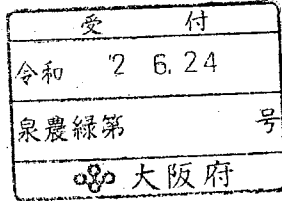 受付
令和 '2 6.24
泉農緑第 号
大阪府